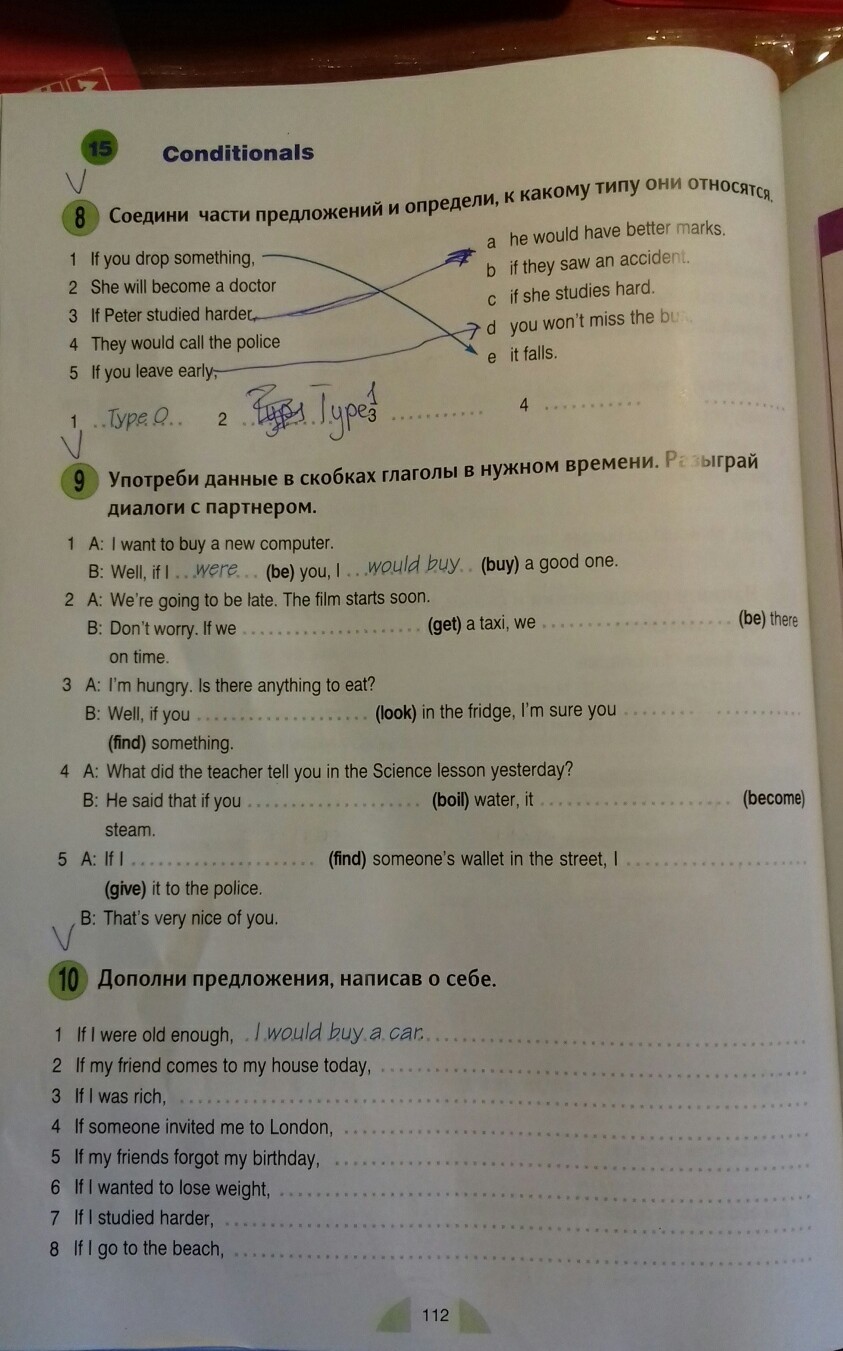 15 Conditionals
8 Соедини части предложений и определи, к какому типу они относятся.
1 If you drop something,
2 She will become a doctor
3 If Peter studied harder,
4 They would call the police
5 If you leave early,
a he would have better marks.
b if they saw an accident.
c if she studies hard.
d you won't miss the
e it falls.
1 ..Type 0.. 2 Type 1 3 .......... 4 ..........
9 Употреби данные в скобках глаголы в нужном времени. Разыграй
диалоги с партнером.
1 A: I want to buy a new computer.
B: Well, if I ...were... (be) you, I ...would buy... (buy) a good one.
2 A: We're going to be late. The film starts soon.
B: Don't worry. If we .......... (get) a taxi, we .......... (be) there
on time.
3 A: I'm hungry. Is there anything to eat?
B: Well, if you .......... (look) in the fridge, I'm sure you ..........
(find) something.
4 A: What did the teacher tell you in the Science lesson yesterday?
B: He said that if you .......... (boil) water, it .......... (become)
steam.
5 A: If I .......... (find) someone's wallet in the street, I ..........
(give) it to the police.
B: That's very nice of you.
10 Дополни предложения, написав о себе.
1 If I were old enough, ..I would buy a car...........
2 If my friend comes to my house today, ..........
3 If I was rich, ..........
4 If someone invited me to London, ..........
5 If my friends forgot my birthday, ..........
6 If I wanted to lose weight, ..........
7 If I studied harder, ..........
8 If I go to the beach, ..........
112